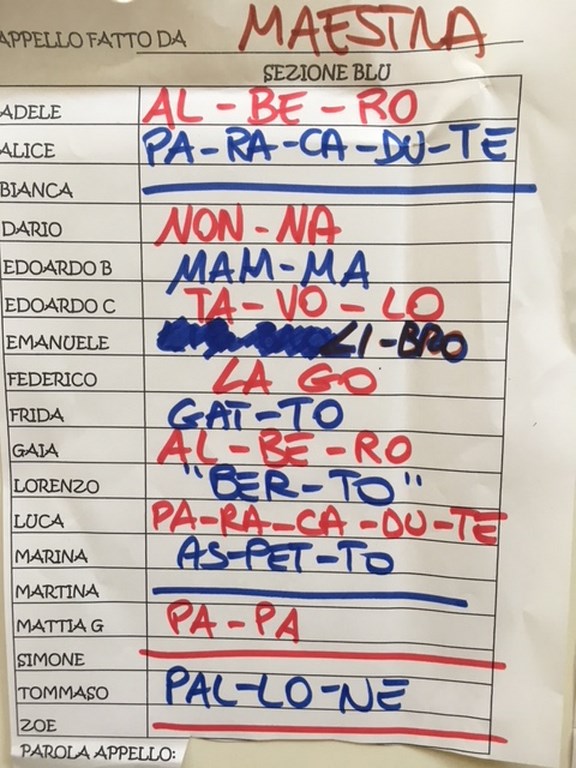 APPELLO FATTO DA MAESTRA
SEZIONE BLU
ADELE AL-BE-RO
ALICE PA-RA-CA-DU-TE
BIANCA
DARIO NON-NA
EDOARDO B MAM-MA
EDOARDO C TA-VO-LO
EMANUELE LI-BRO
FEDERICO LA GO
FRIDA GAT-TO
GAIA AL-BE-RO
LORENZO "BER-TO"
LUCA PA-RA-CA-DU-TE
MARINA AS-PET-TO
MARTINA
MATTIA G PA-PA
SIMONE
TOMMASO PAL-LO-NE
ZOE
PAROLA APPELLO: